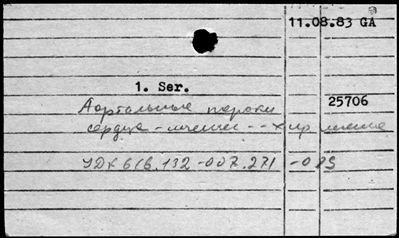 11.08.83 GA
1. Ser.
Аортальные пороки 25706
сердца - лечение -- хир лечение
УДК 616.132-007.271 -089